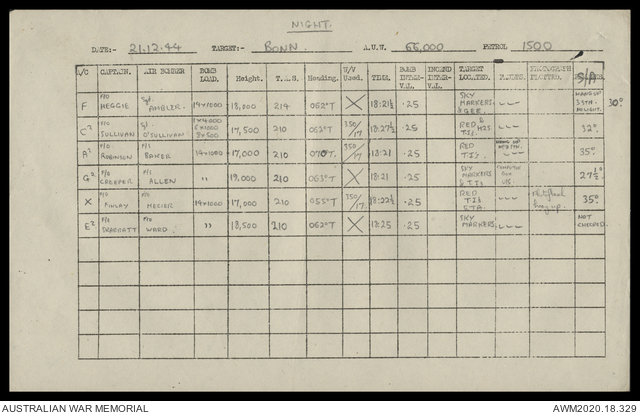 NIGHT.
DATE:- 21.12.44 TARGET:- BONN. A.U.W. 66,000 PETROL 1500
A/C CAPTAIN. AIR BOMBER BOMB LOAD. Height. T.A.S. Heading. W/V Used. TIME. BOMB INTER-VAL. INCEND INTER-VAL. TARGET LOCATED. PHOTOGRAPH PLOTTED. S/A
F F/O HEGGIE AMBLER. 14x1000 18,000 214 062°T X 18:21½ .25 SKY MARKERS & GEE. HANG UP 30°
C² F/O SULLIVAN O'SULLIVAN 1x4000 17,500 210 062°T 350/17 18:27½ .25 RED & H2S TI's 32°
A² F/O ROBINSON BAKER 14x1000 17,000 210 070T. 350/17 18:21 .25 RED TI's HANG UP 35°
G² F/O CREEPER ALLEN " 19,000 210 063°T X 18:21 .25 SKY MARKERS & TI's 27½°
X P/O FINLAY MERCER 14x1000 17,000 210 055°T 350/17 18:22½ .25 RED TI's hang up. 35°
E² F/O DRAGOTT WARD. " 18,500 210 062°T X 18:25 .25 SKY MARKERS NOT CHECKED.
AUSTRALIAN WAR MEMORIAL AWM2020.18.329